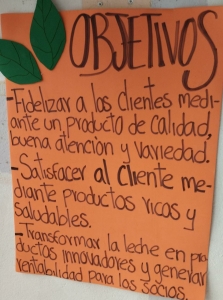 OBJETIVOS
-Fidelizar a los clientes medi-
ante un producto de calidad,
buena atención y variedad.
-Satisfacer al cliente me-
diante productos ricos y
saludables.
-Transformar la leche en pro
ductos innovadores y generar
rentabilidad para los socios.